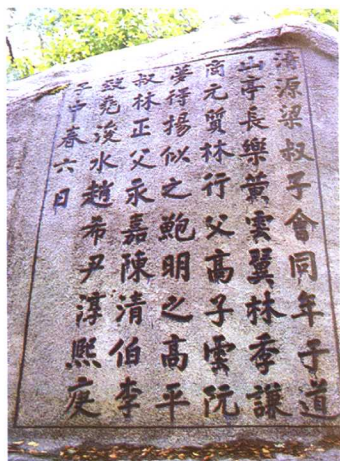 清源梁叔子會同年于道
山亭長樂黃雲翼林季謙
商元質林行父高子雲阮
夢得揚似之鮑明之高平
叔林正父永嘉陳清伯李
堯浚水趙希尹淳熙庚
子中春六日